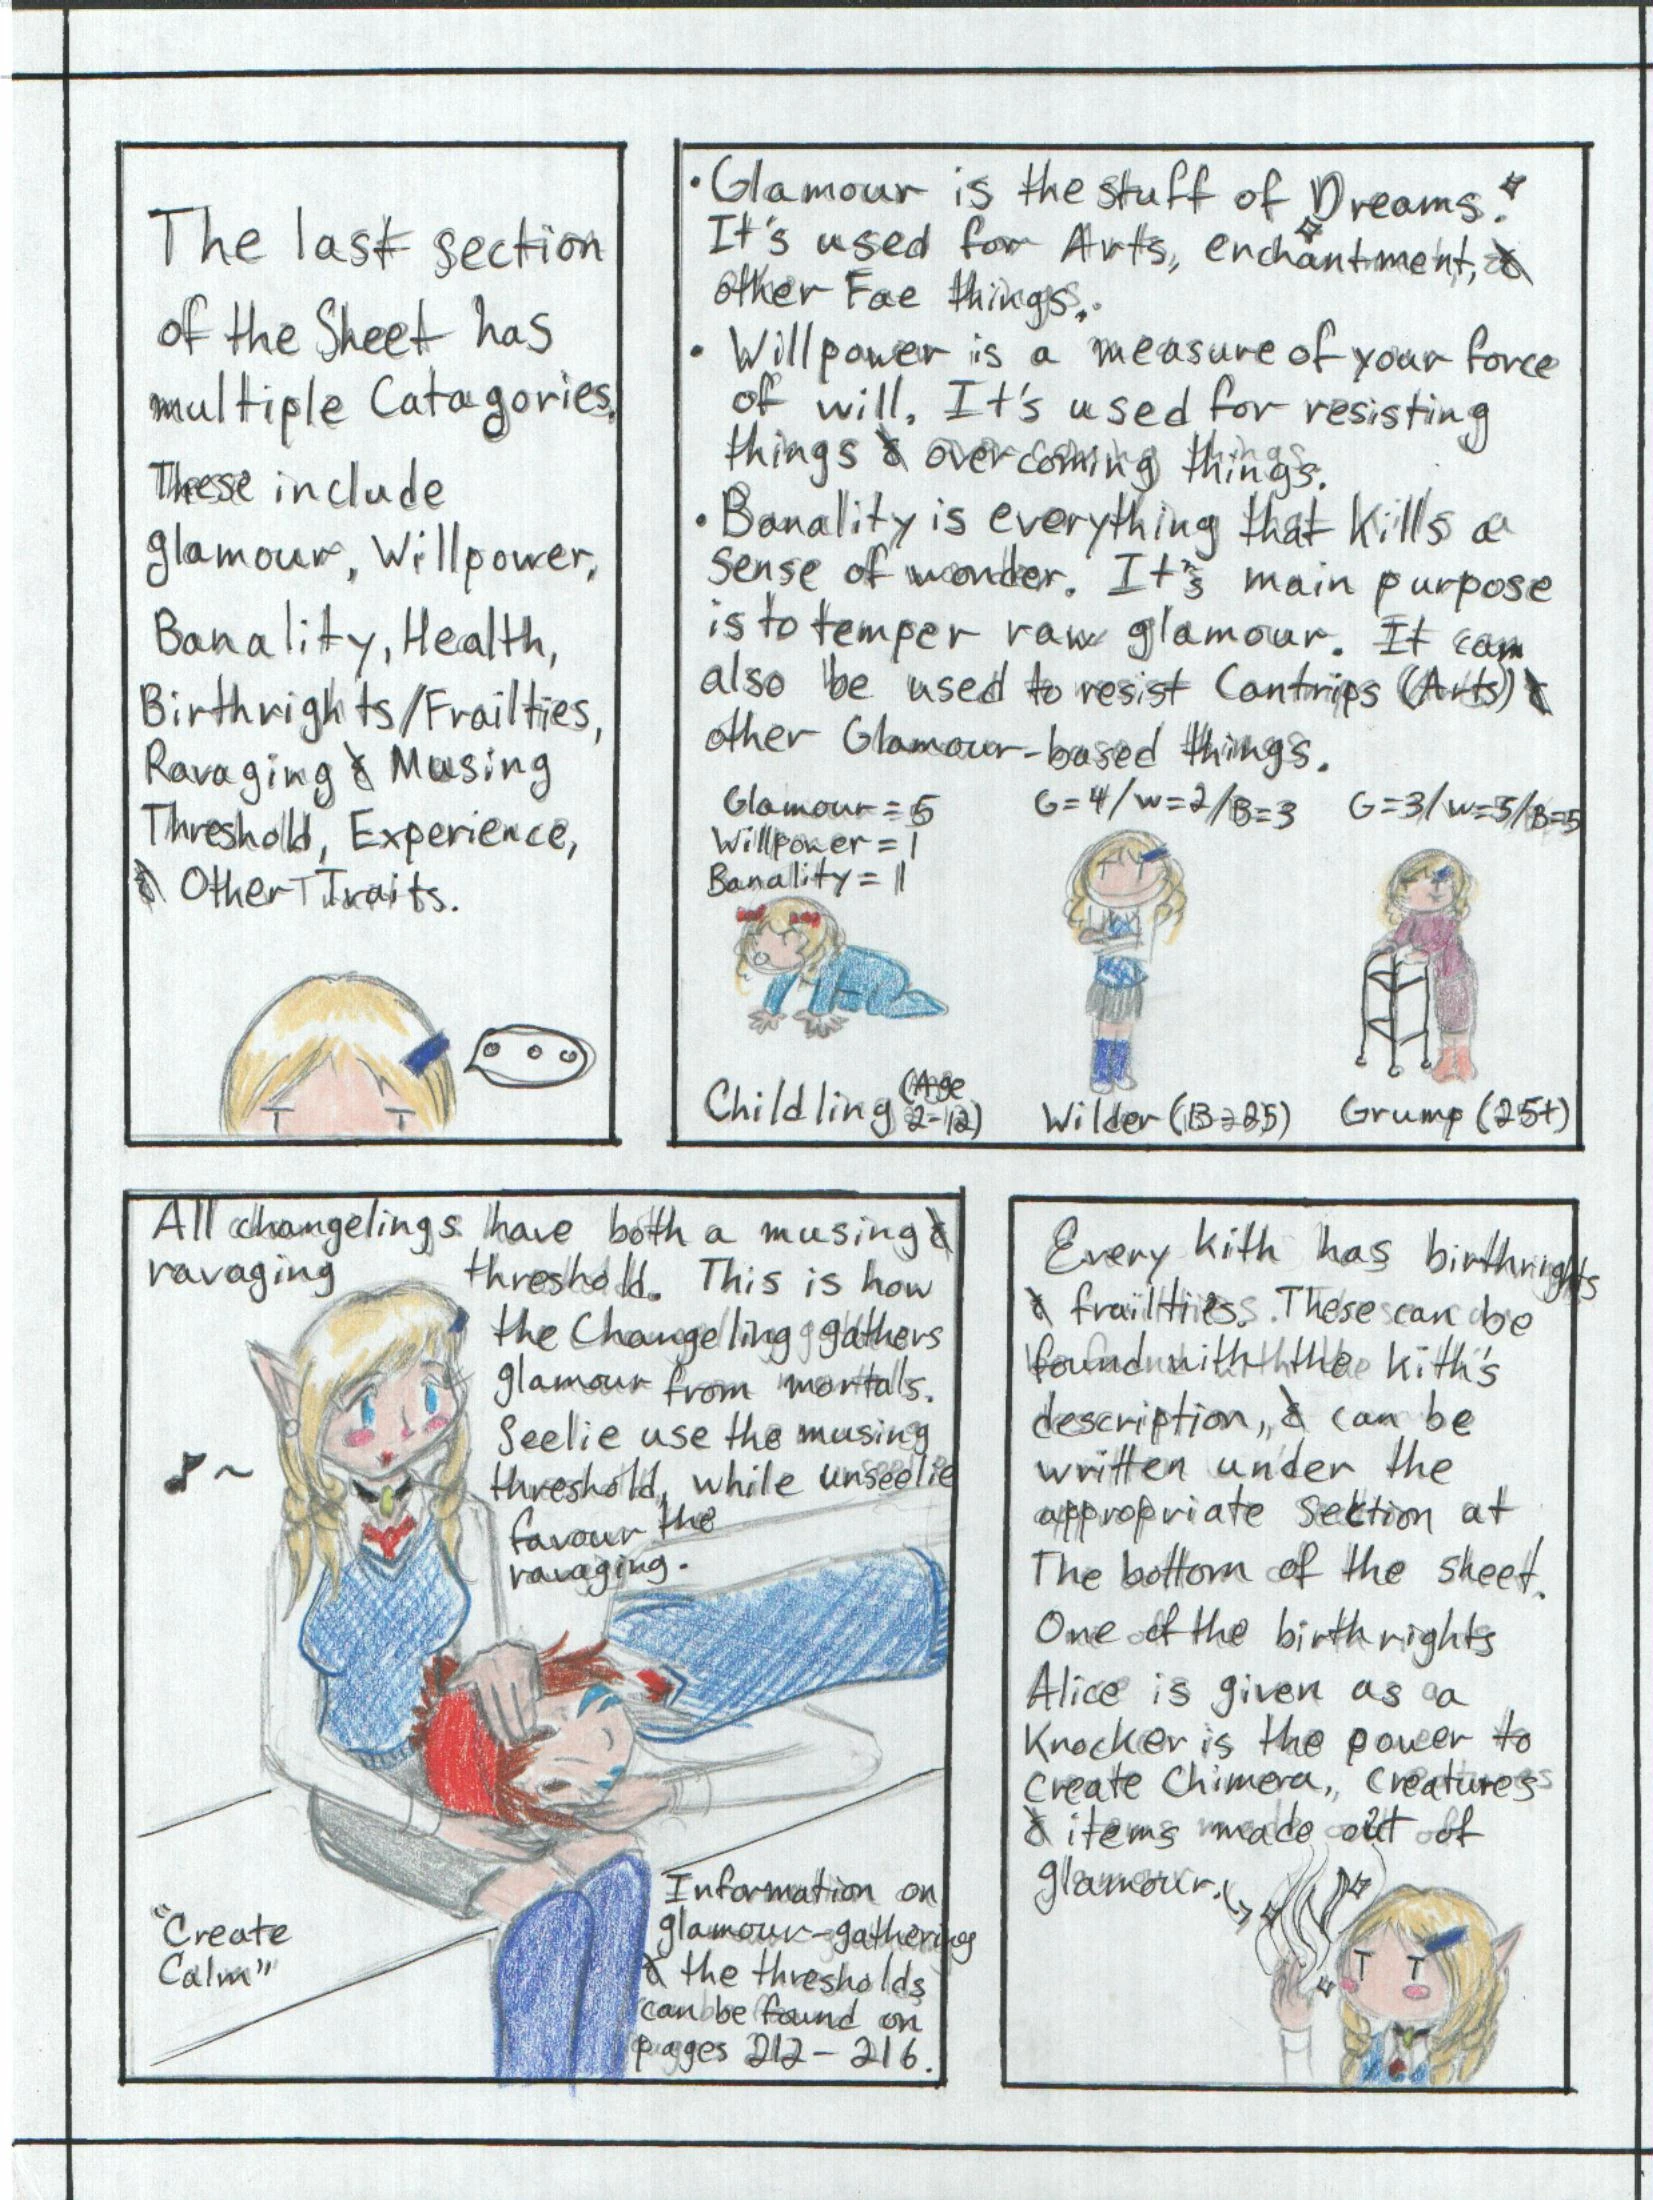 The last section
of the Sheet has
multiple Catagories.
These include
glamour, Willpower,
Banality, Health,
Birthrights/Frailties,
Ravaging & Musing
Threshold, Experience,
& Other Traits.
• Glamour is the stuff of Dreams.
It's used for Arts, enchantment, &
other Fae things.
• Willpower is a measure of your force
of will. It's used for resisting
things & overcoming things.
• Banality is everything that kills a
sense of wonder. It's main purpose
is to temper raw glamour. It can
also be used to resist Cantrips (Arts) &
other Glamour-based things.
Glamour = 5
Willpower = 1
Banality = 1
G=4/W=2/B=3
G=3/W=5/B=5
Childling (Age
2-12)
Wilder (13-25)
Grump (25+)
All changelings have both a musing &
ravaging threshold. This is how
the Changeling gathers
glamour from mortals.
Seelie use the musing
threshold, while unseelie
favour the
ravaging.
"Create
Calm"
Information on
glamour-gathering
& the thresholds
can be found on
pages 212-216.
Every kith has birthrights
& frailties. These can be
found with the kith's
description, & can be
written under the
appropriate section at
The bottom of the sheet.
One of the birthrights
Alice is given as a
Knocker is the power to
create Chimera, creatures
& items made out of
glamour.